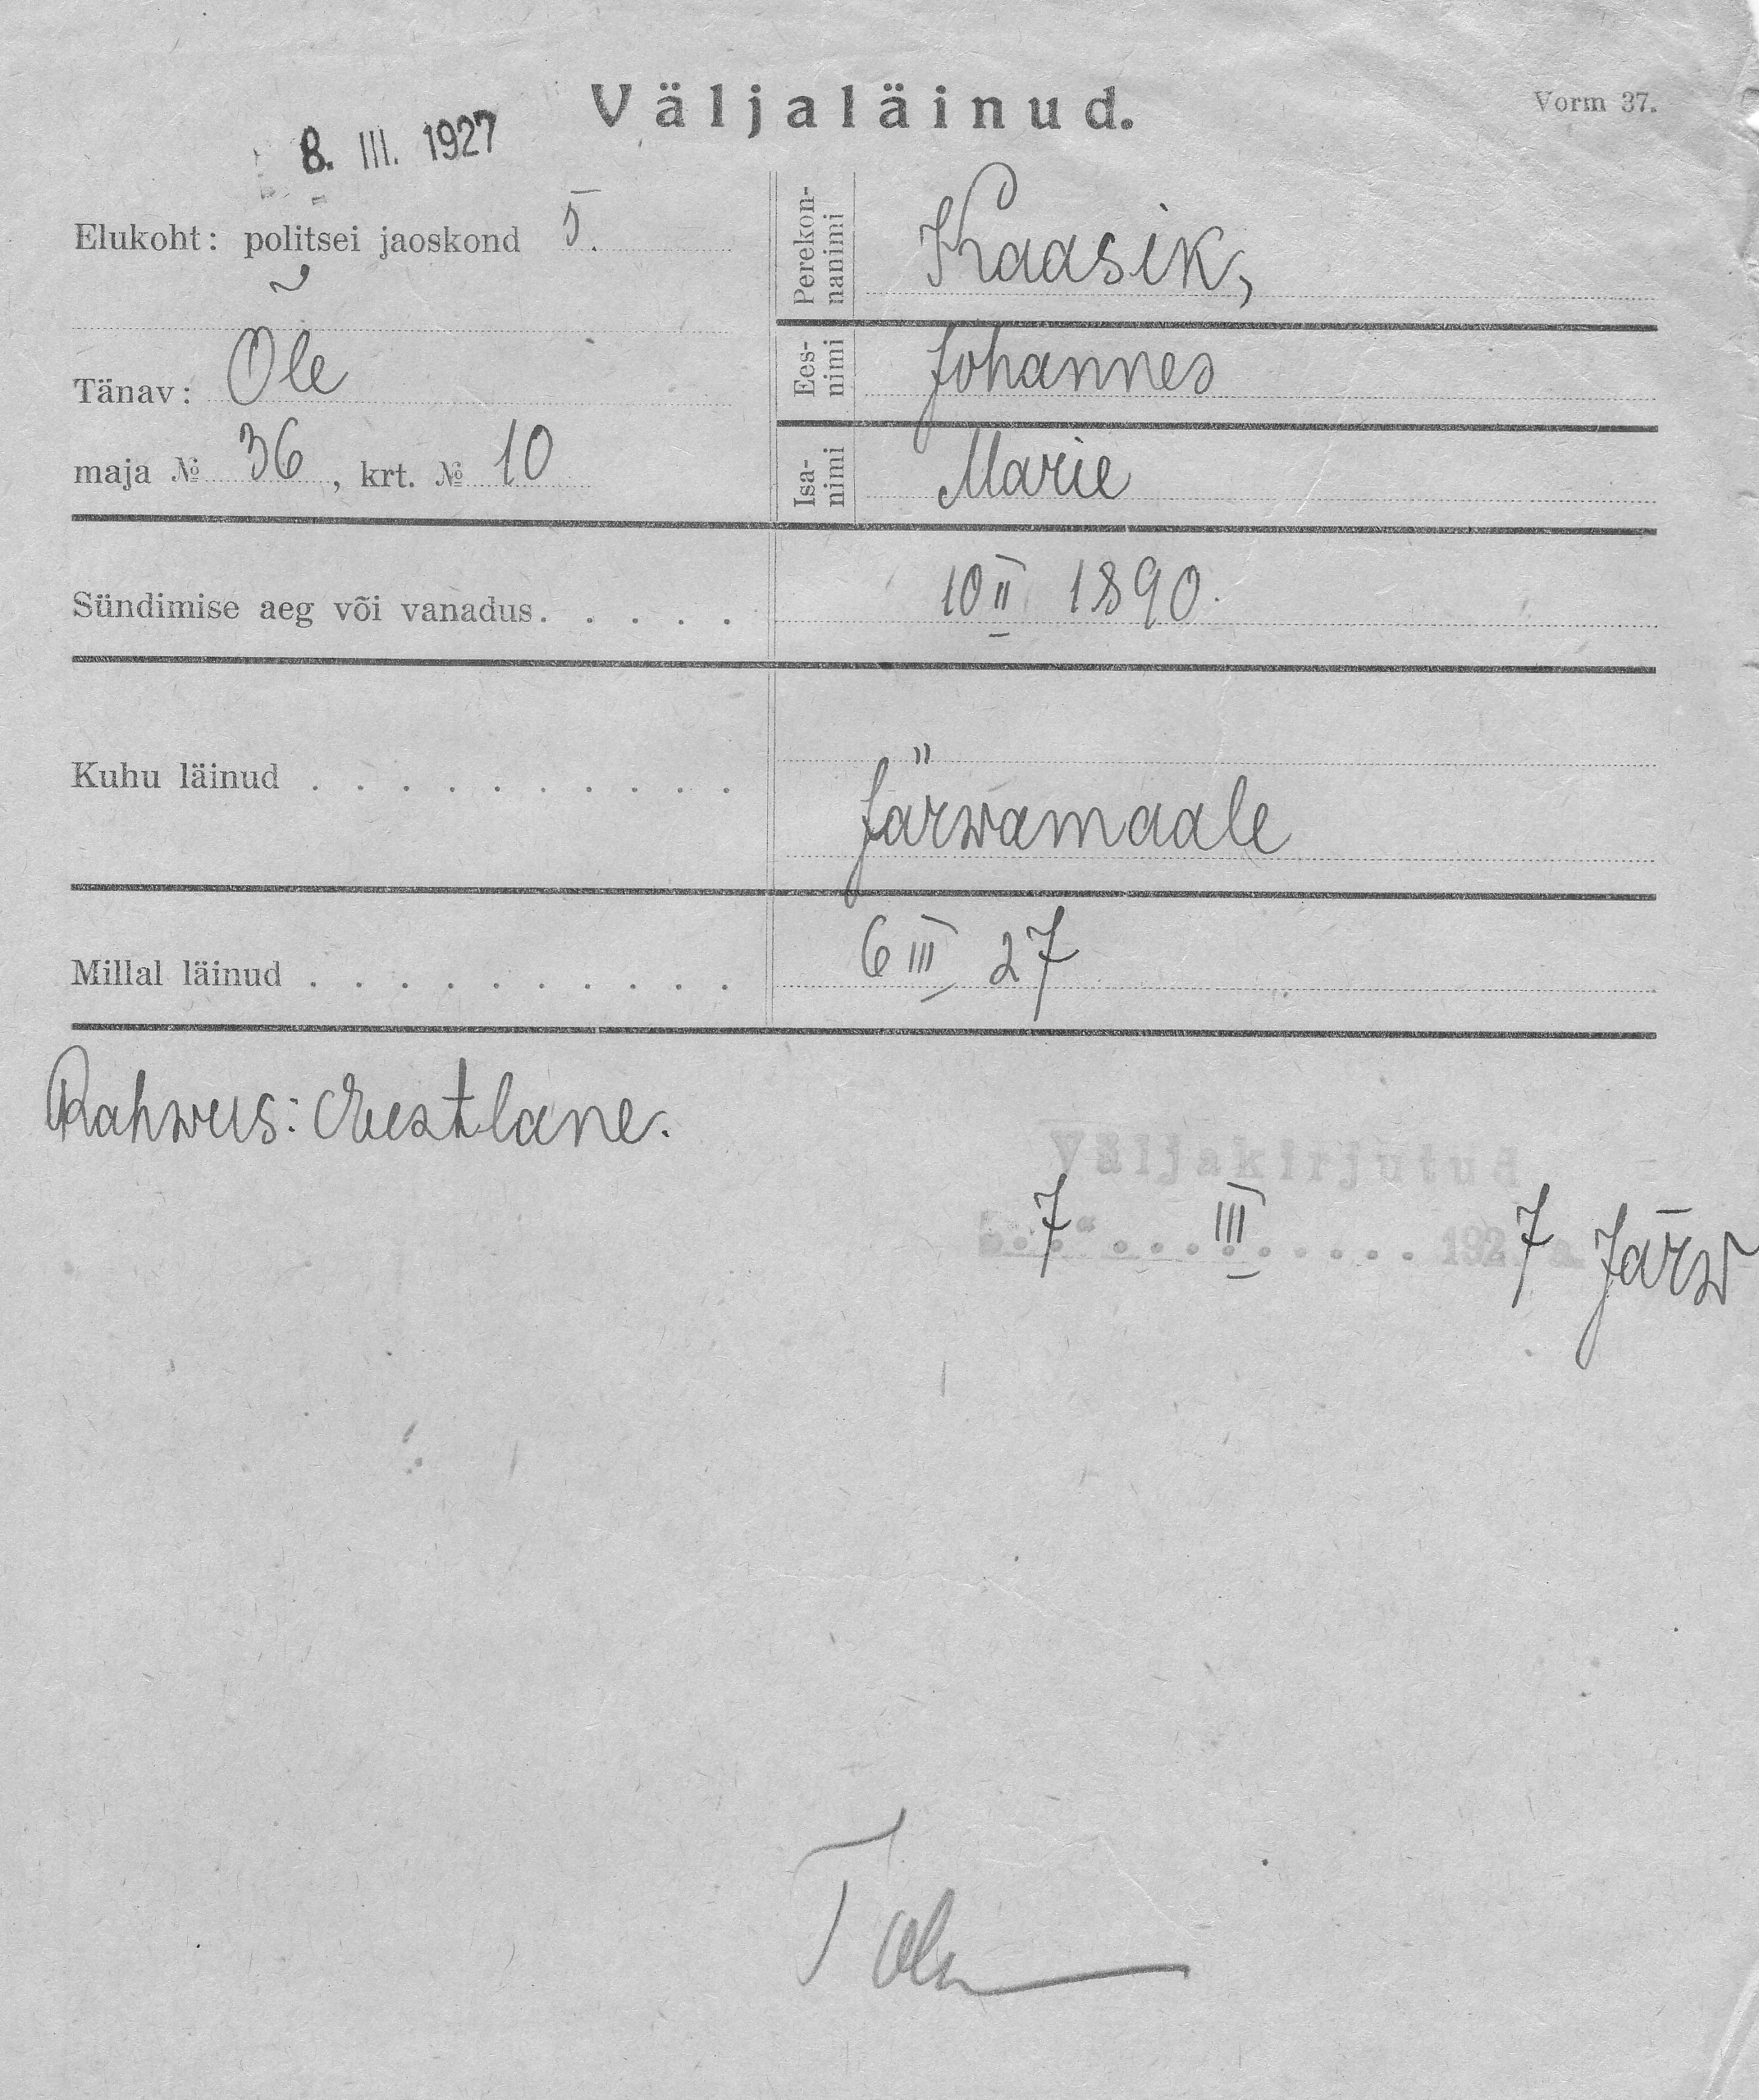 Väljaläinud.
Vorm 37.
8. III. 1927
Elukoht: politsei jaoskond 5.
Tänav: Ole
maja № 36, krt. № 10
Perekon-
nanimi
Kaasik,
Ees-
nimi
Johannes
Isa-
nimi
Marie
Sündimise aeg või vanadus. . . . . 10 II 1890.
Kuhu läinud . . . . . . . . . .
Järwamaale
Millal läinud . . . . . . . . . . 6 III 27
Rahwus: Eestlane.
Väljakirjutud
7 III 1927 a. Järw